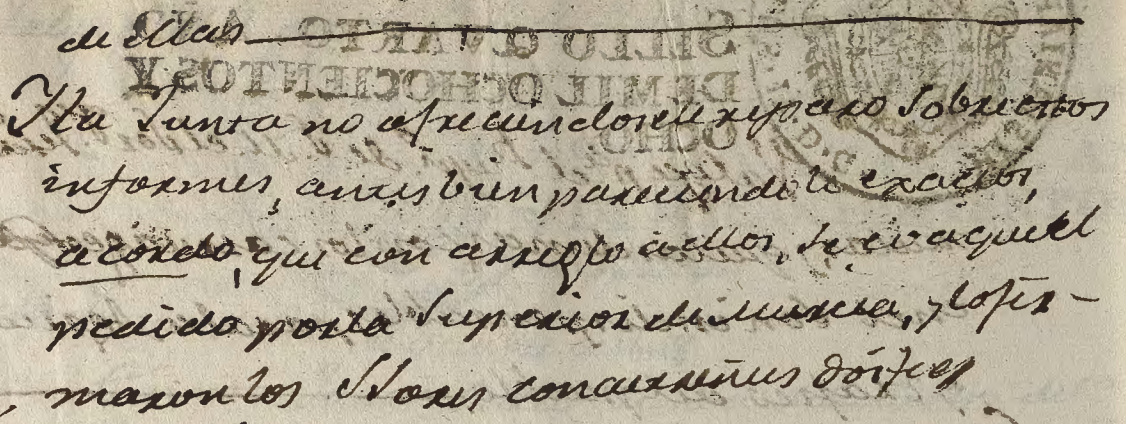 de ellas
Y la Junta no ofreciendosele reparo sobre estos
informes, antes bien pareciendole exactos,
acordo, que con arreglo a ellos, se evaque el
pedido por la Superior de Murcia, y lo fir-
maron los SSores concurrentes
SELLO QVARTO
DE MIL OCHOCIENTOS Y
OCHO.